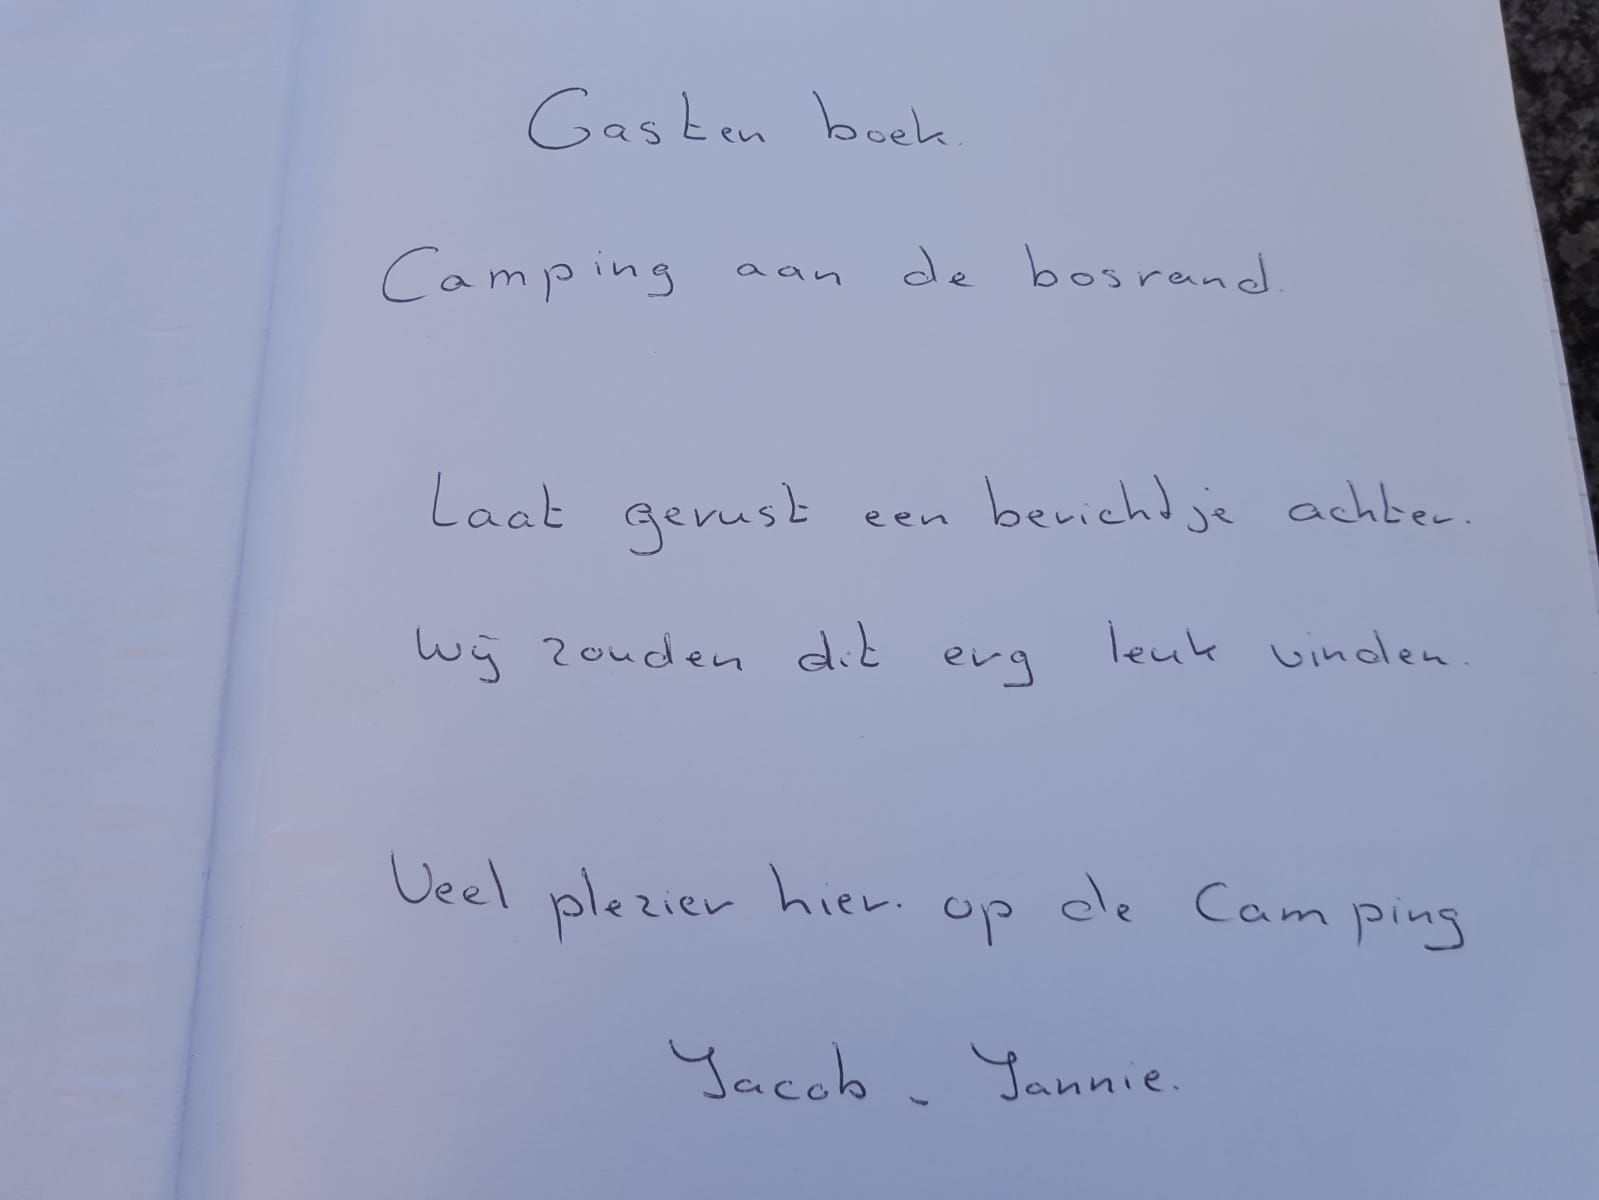 Gasten boek.
Camping aan de bosrand.
Laat gerust een berichtje achter.
Wij zouden dit erg leuk vinden.
Veel plezier hier. op de Camping
Jacob - Jannie.